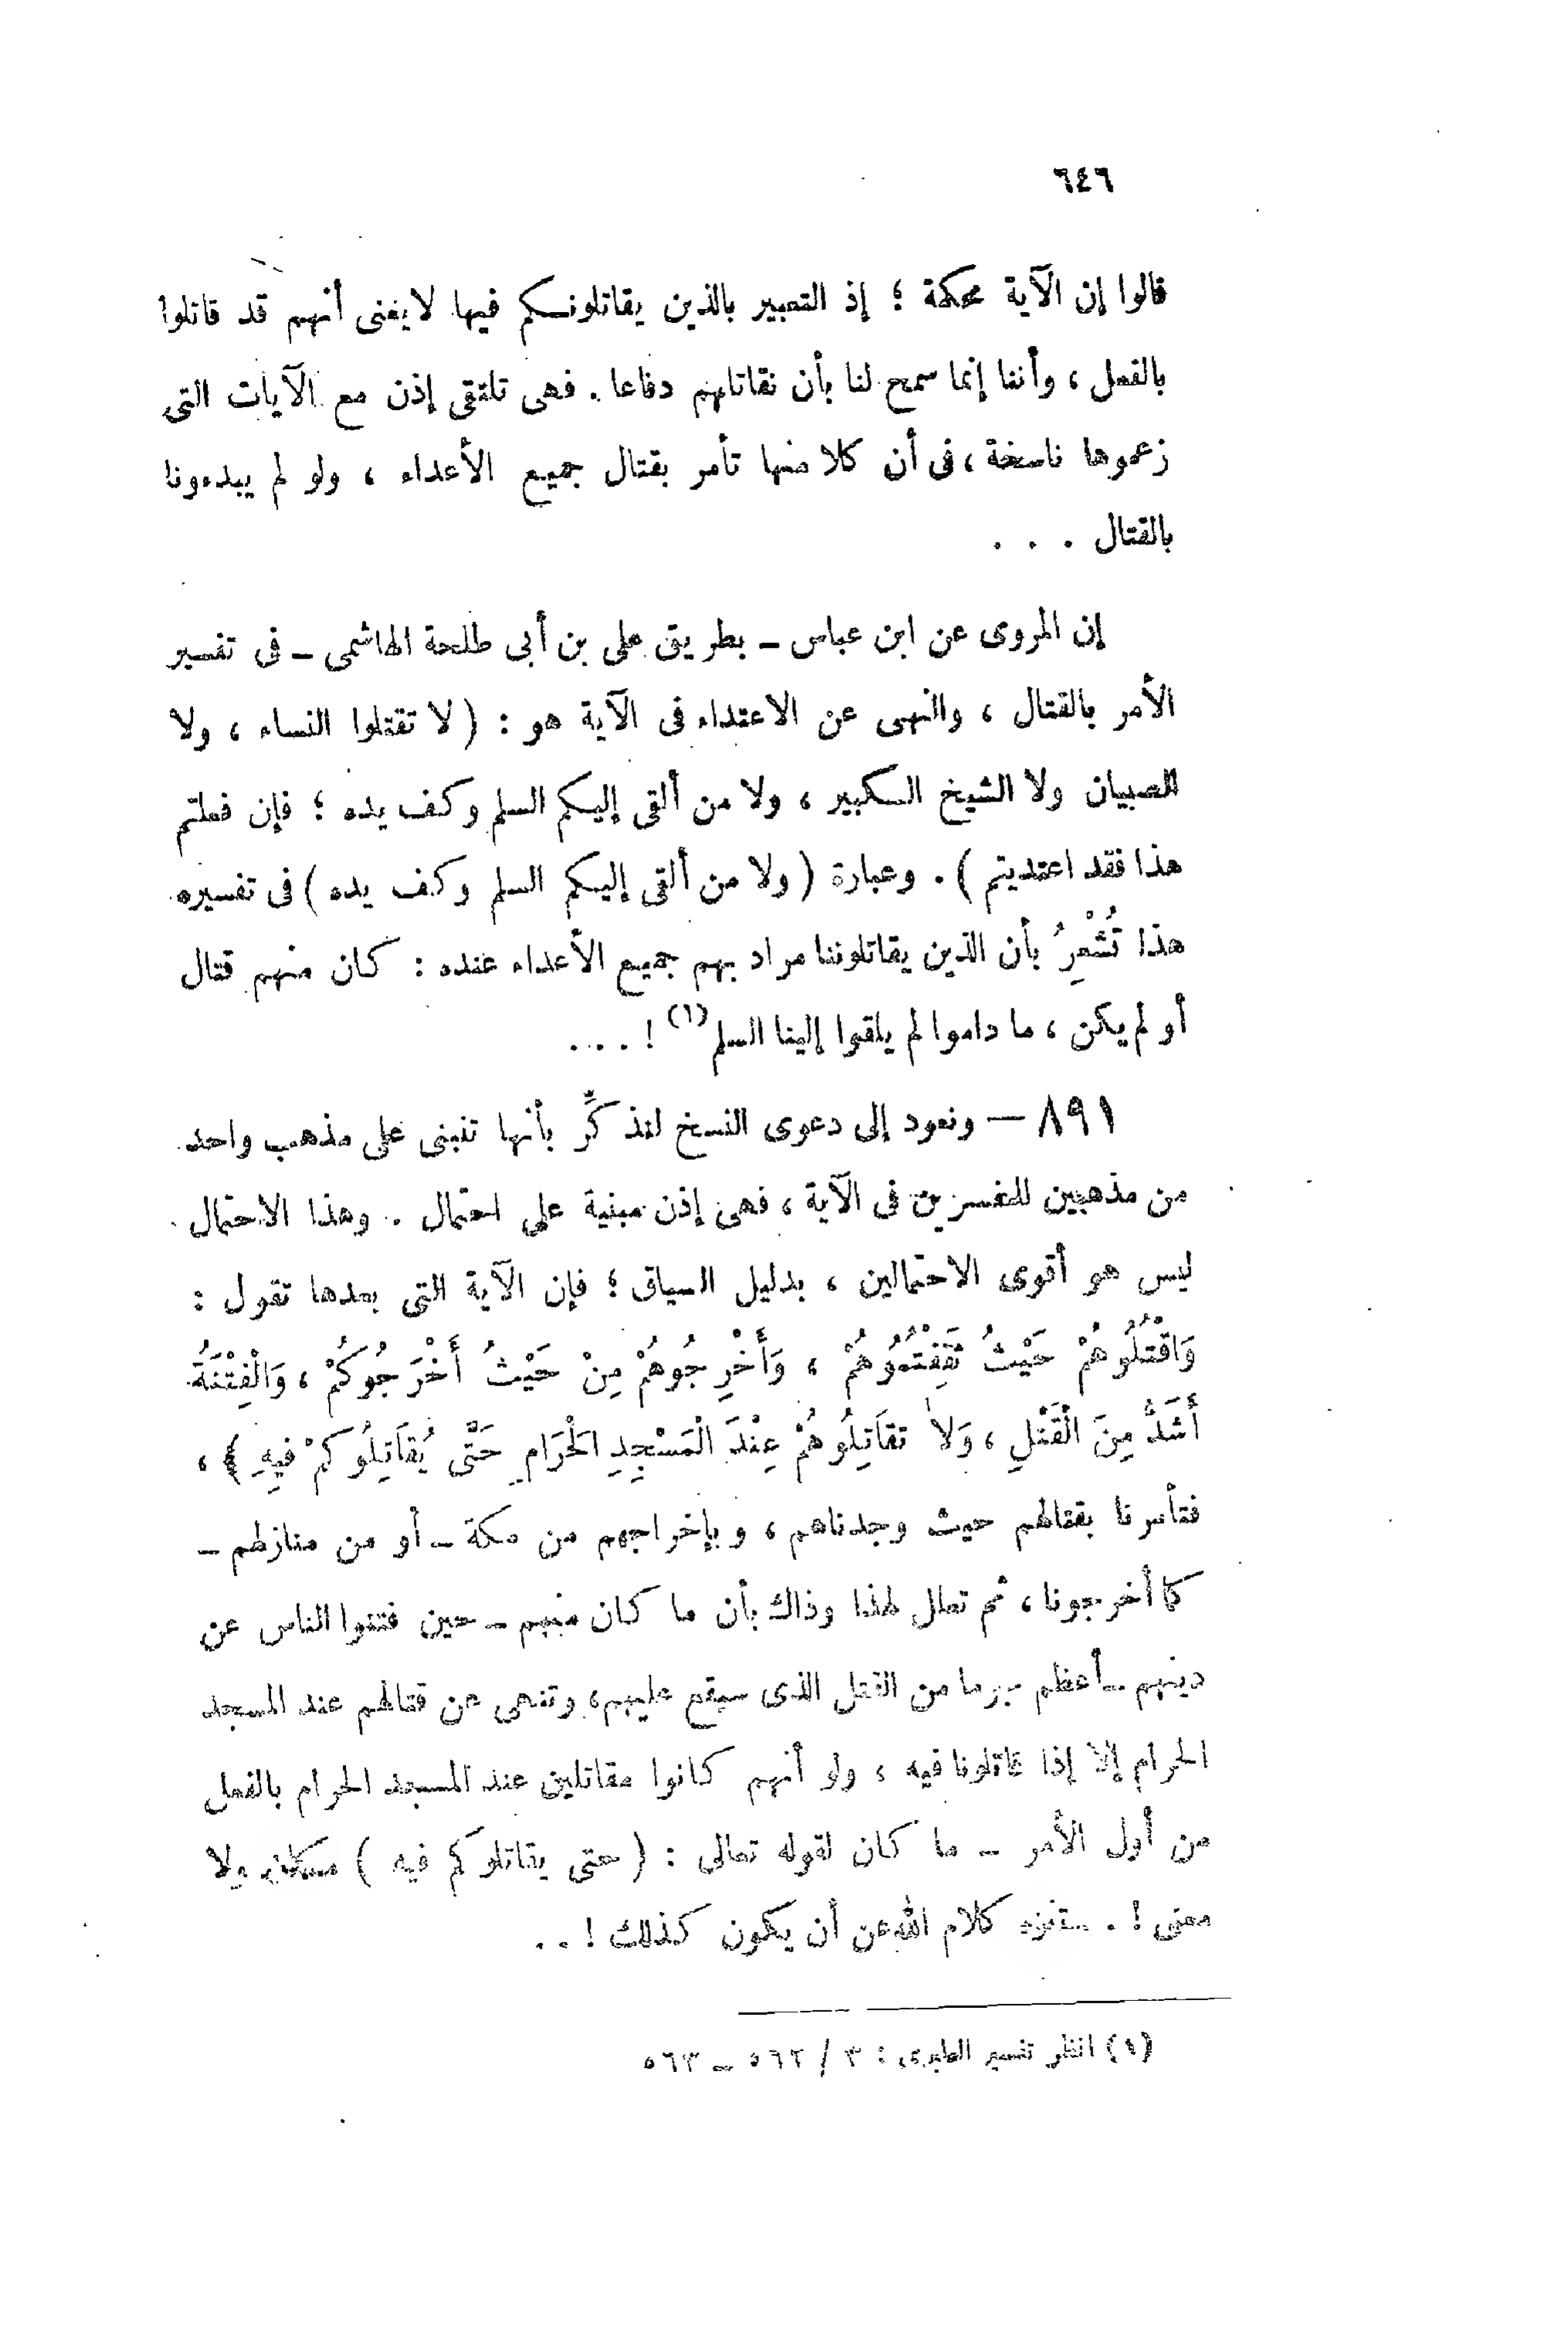 ٦٤٦
قالوا إن الآية محكمة ؛ إذ التعبير بالذين يقاتلونكم فيها لا يعنى أنهم قد قاتلوا
بالفعل ، وأننا إنما سمح لنا بأن نقاتلهم دفاعا . فهى تلتقى إذن مع الآيات التى
زعموها ناسخة ، فى أن كلا منها تأمر بقتال جميع الأعداء ، ولو لم يبدءونا
بالقتال . . .
إن المروى عن ابن عباس – بطريق على بن أبى طلحة الهاشمى – فى تفسير
الأمر بالقتال ، والنهى عن الاعتداء فى الآية هو : ( لا تقتلوا النساء ، ولا
الصبيان ولا الشيخ الكبير ، ولا من ألقى إليكم السلم وكف يده ؛ فإن فعلتم
هذا فقد اعتديتم ) . وعبارة ( ولا من ألقى إليكم السلم وكف يده ) فى تفسيره
هذا تُشْعِرُ بأن الذين يقاتلوننا مراد بهم جميع الأعداء عنده : كان منهم قتال
أو لم يكن ، ما داموا لم يلقوا إلينا السلم (١) ! . . .
٨٩١ – ونعود إلى دعوى النسخ لنذكِّر بأنها تنبنى على مذهب واحد
من مذهبين للمفسرين فى الآية ، فهى إذن مبنية على احتمال . وهذا الاحتمال
ليس هو أقوى الاحتمالين ، بدليل السياق ؛ فإن الآية التى بعدها تقول :
وَاقْتُلُوهُمْ حَيْثُ ثَقِفْتُمُوهُمْ ، وَأَخْرِجُوهُمْ مِنْ حَيْثُ أَخْرَجُوكُمْ ، وَالْفِتْنَةُ
أَشَدُّ مِنَ الْقَتْلِ ، وَلَا تقَاتِلُوهُمْ عِنْدَ الْمَسْجِدِ الْحَرَامِ حَتَّى يُقَاتِلُوكُمْ فِيهِ ﴾ ،
فتأمرنا بقتالهم حيث وجدناهم ، وبإخراجهم من مكة – أو من منازلهم –
كما أخرجونا ، ثم تعلل لهذا وذاك بأن ما كان منهم – حين فتنوا الناس عن
دينهم – أعظم جرما من القتل الذى سيقع عليهم ، وتنهى عن قتالهم عند المسجد
الحرام إلا إذا قاتلونا فيه ، ولو أنهم كانوا مقاتلين عند المسجد الحرام بالفعل
من أول الأمر – ما كان لقوله تعالى : ( حتى يقاتلوكم فيه ) مكان ولا
معنى ! . كلام الله عن أن يكون كذلك ! . .
(١) انظر تفسير الطبرى : ٣ / ٥٦٢ – ٥٦٣